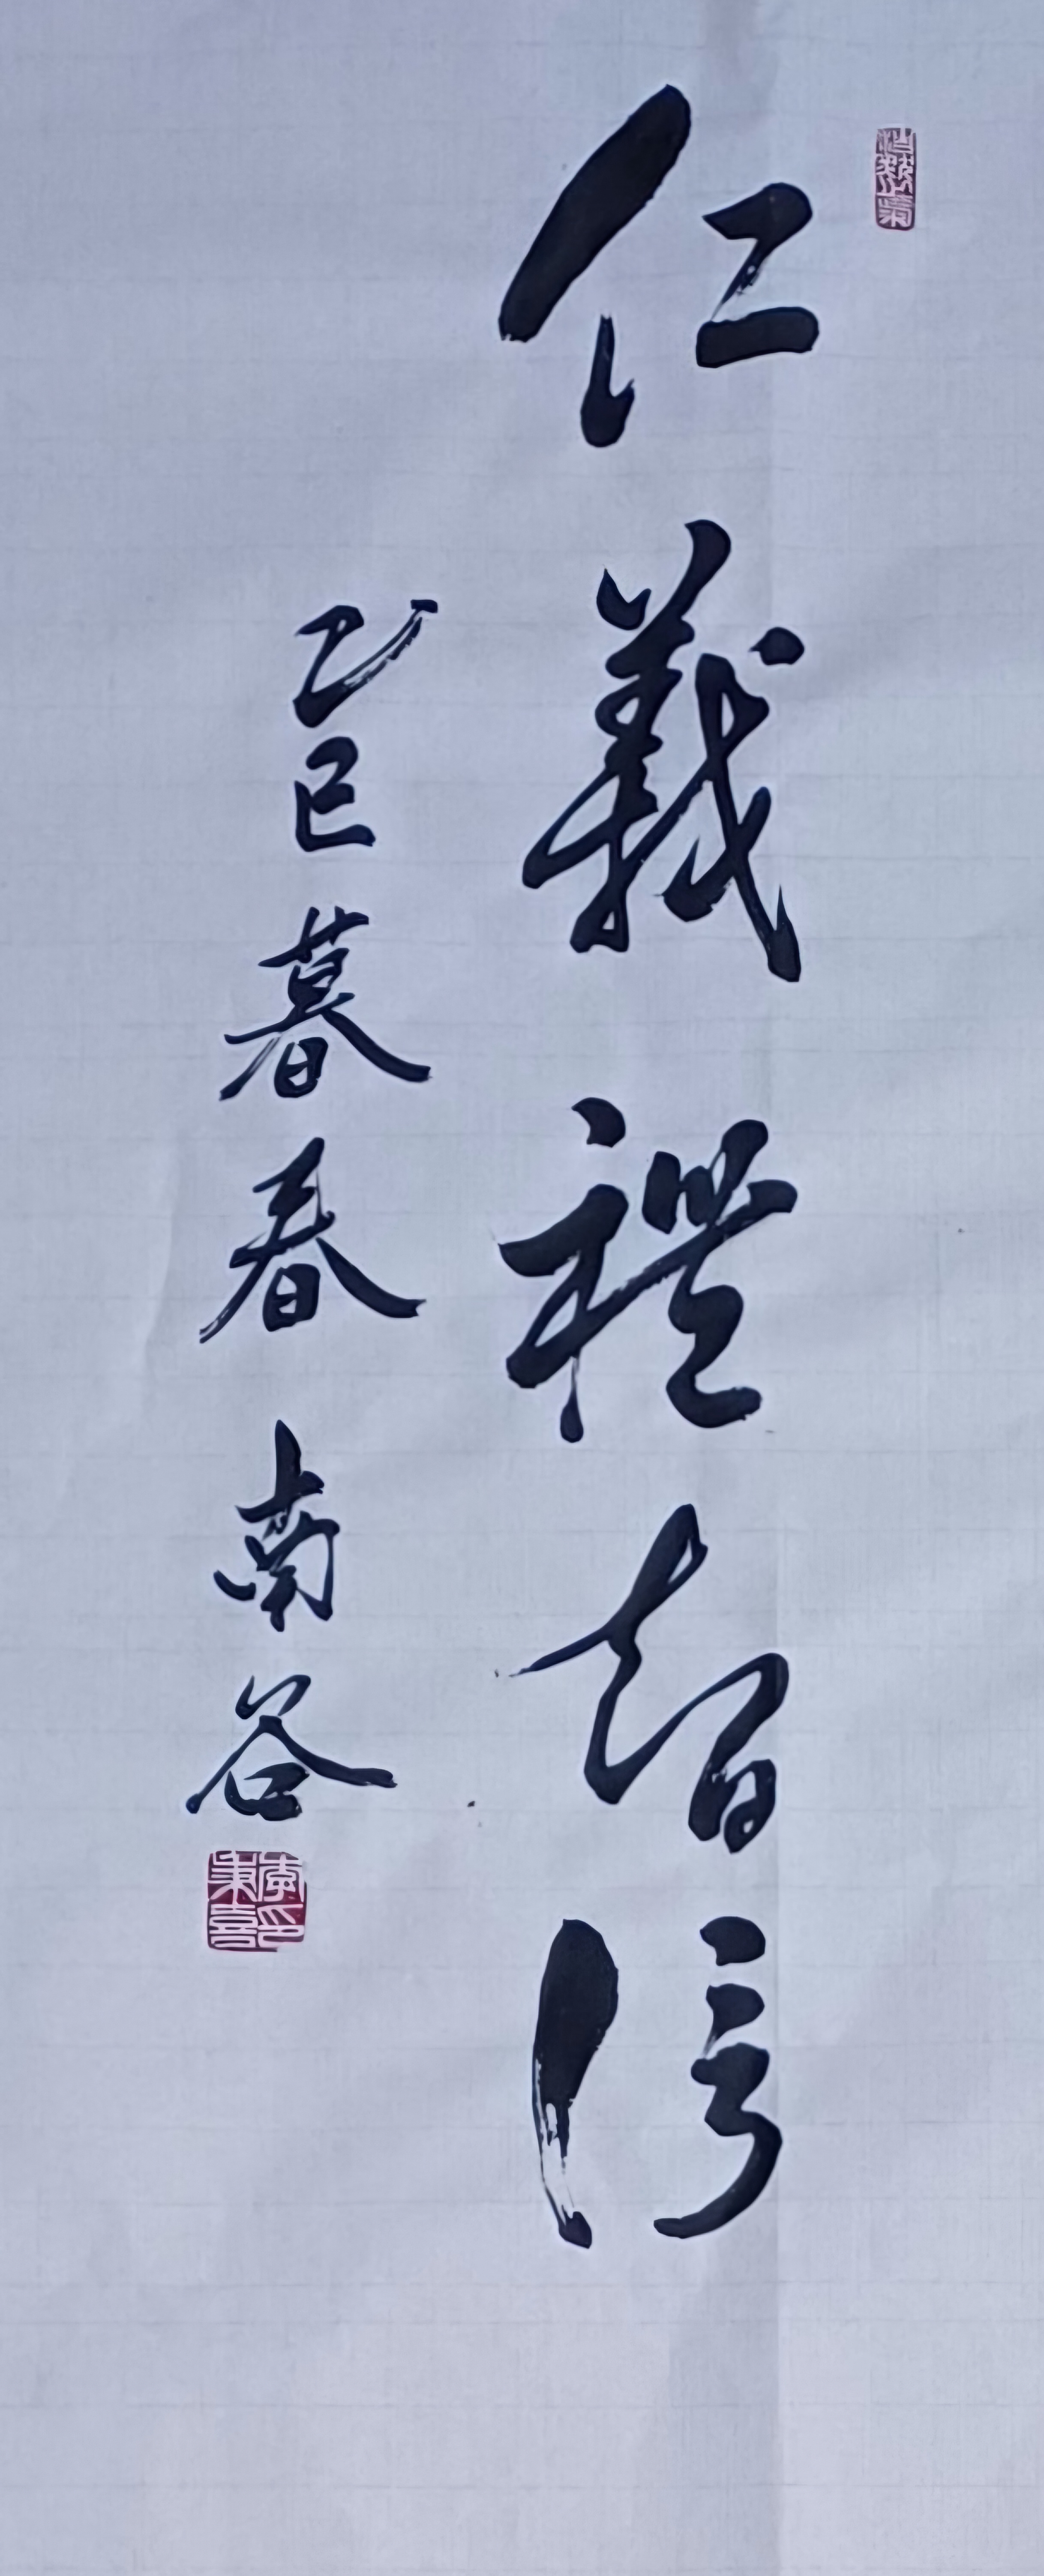 仁義禮智信
乙巳暮春 南谷